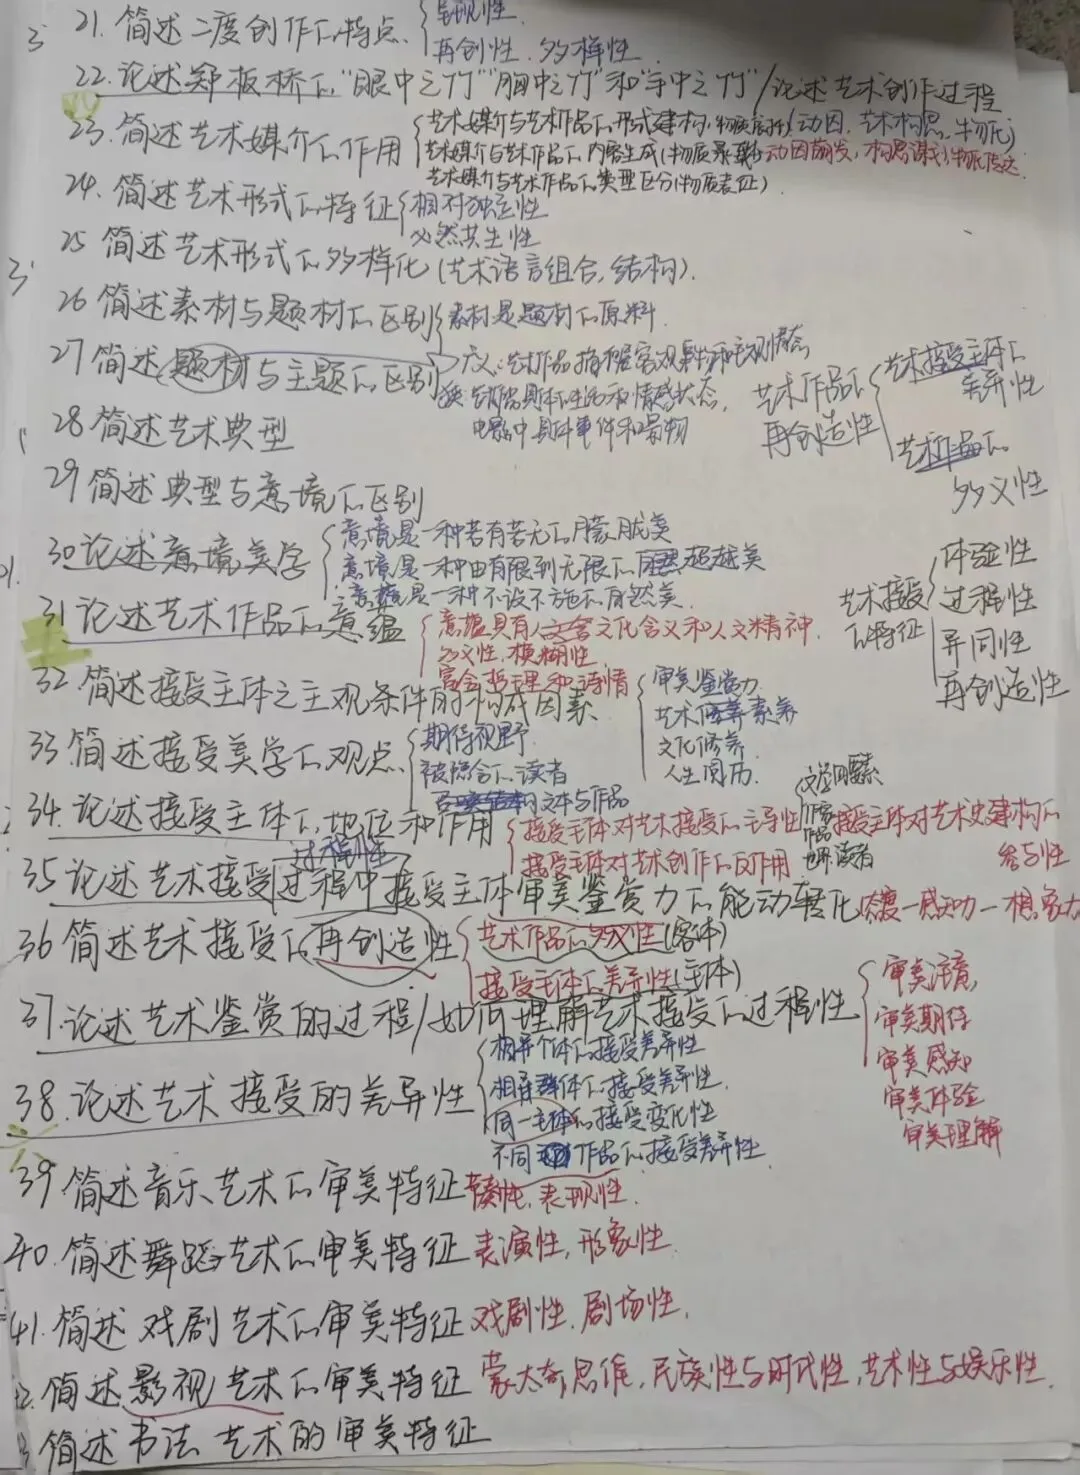 21. 简述二度创作的特点 呈现性
再创性 多样性
22. 论述郑板桥的"眼中之竹""胸中之竹"和"手中之竹"/论述艺术创作过程
23. 简述艺术媒介的作用 艺术媒介与艺术作品的形式建构 动因、艺术构思、物化)
艺术媒介与艺术作品的内容生成 动因萌发,构思谋划,物化传达
艺术媒介与艺术作品的类型区分(物质表征)
24. 简述艺术形式的特征 相对独立性
必然共生性
25 简述艺术形式的多样化(艺术语言组合,结构).
26 简述素材与题材的区别 素材是题材的原料
27 简述题材与主题的区别 广义:艺术作品 客观事物和主观情态
狭:艺术作品具体的生活和情感状态,
电影中具体事件和景物
28 简述艺术典型
艺术作品的再创造性
艺术接受主体的差异性
艺术作品的多义性
29 简述典型与意境的区别
30 论述意境美学 意境是一种若有若无的朦胧美
意境是一种由有限到无限的超越美
意境是一种不设不施的自然美
艺术接受的特征
体验性
过程性
异同性
再创造性
31 论述艺术作品的意蕴 意蕴具有人文含义和人文精神
多义性,模糊性
富含哲理和诗情
32 简述接受主体之主观条件的构成因素
审美鉴赏力
艺术素养
文化修养
人生阅历
33 简述接受美学的观点 期待视野
被隐含的读者
文本与作品
34. 论述接受主体的地位和作用 接受主体对艺术接受的主导性 接受主体对艺术史建构的参与性
接受主体对艺术创作的反作用
文学四要素
作家
作品
世界 读者
过程性
35 论述艺术接受过程中接受主体审美鉴赏力的能动转化 态度—感知力—想象力
36 简述艺术接受的再创造性 艺术作品的多义性(客体)
接受主体的差异性(主体)
37. 论述艺术鉴赏的过程/如何理解艺术接受的过程性
审美注意
审美期待
审美感知
审美体验
审美理解
38. 论述艺术接受的差异性 相异个体的接受差异性
相异群体的接受差异性
同一主体的接受变化性
不同作品的接受差异性
39 简述音乐艺术的审美特征 表现性
40. 简述舞蹈艺术的审美特征 表演性,形象性
41. 简述戏剧艺术的审美特征 戏剧性.剧场性.
简述影视艺术的审美特征 蒙太奇思维,民族性与时代性,艺术性与娱乐性
简述书法艺术的审美特征